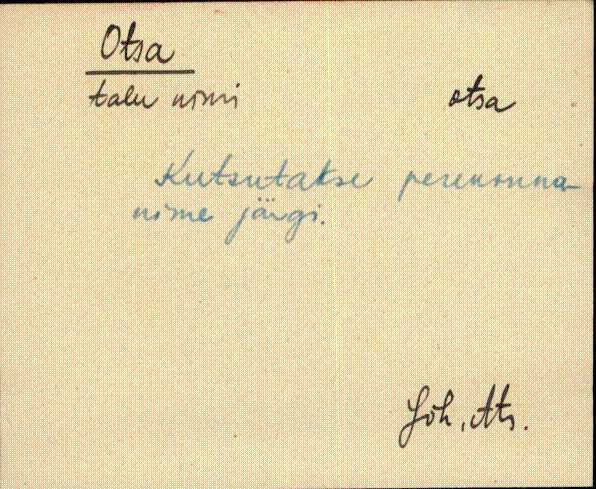 Otsa
talu nimi otsa
Kutsutakse perekonna-
nime järgi.
Jõh, Ats.